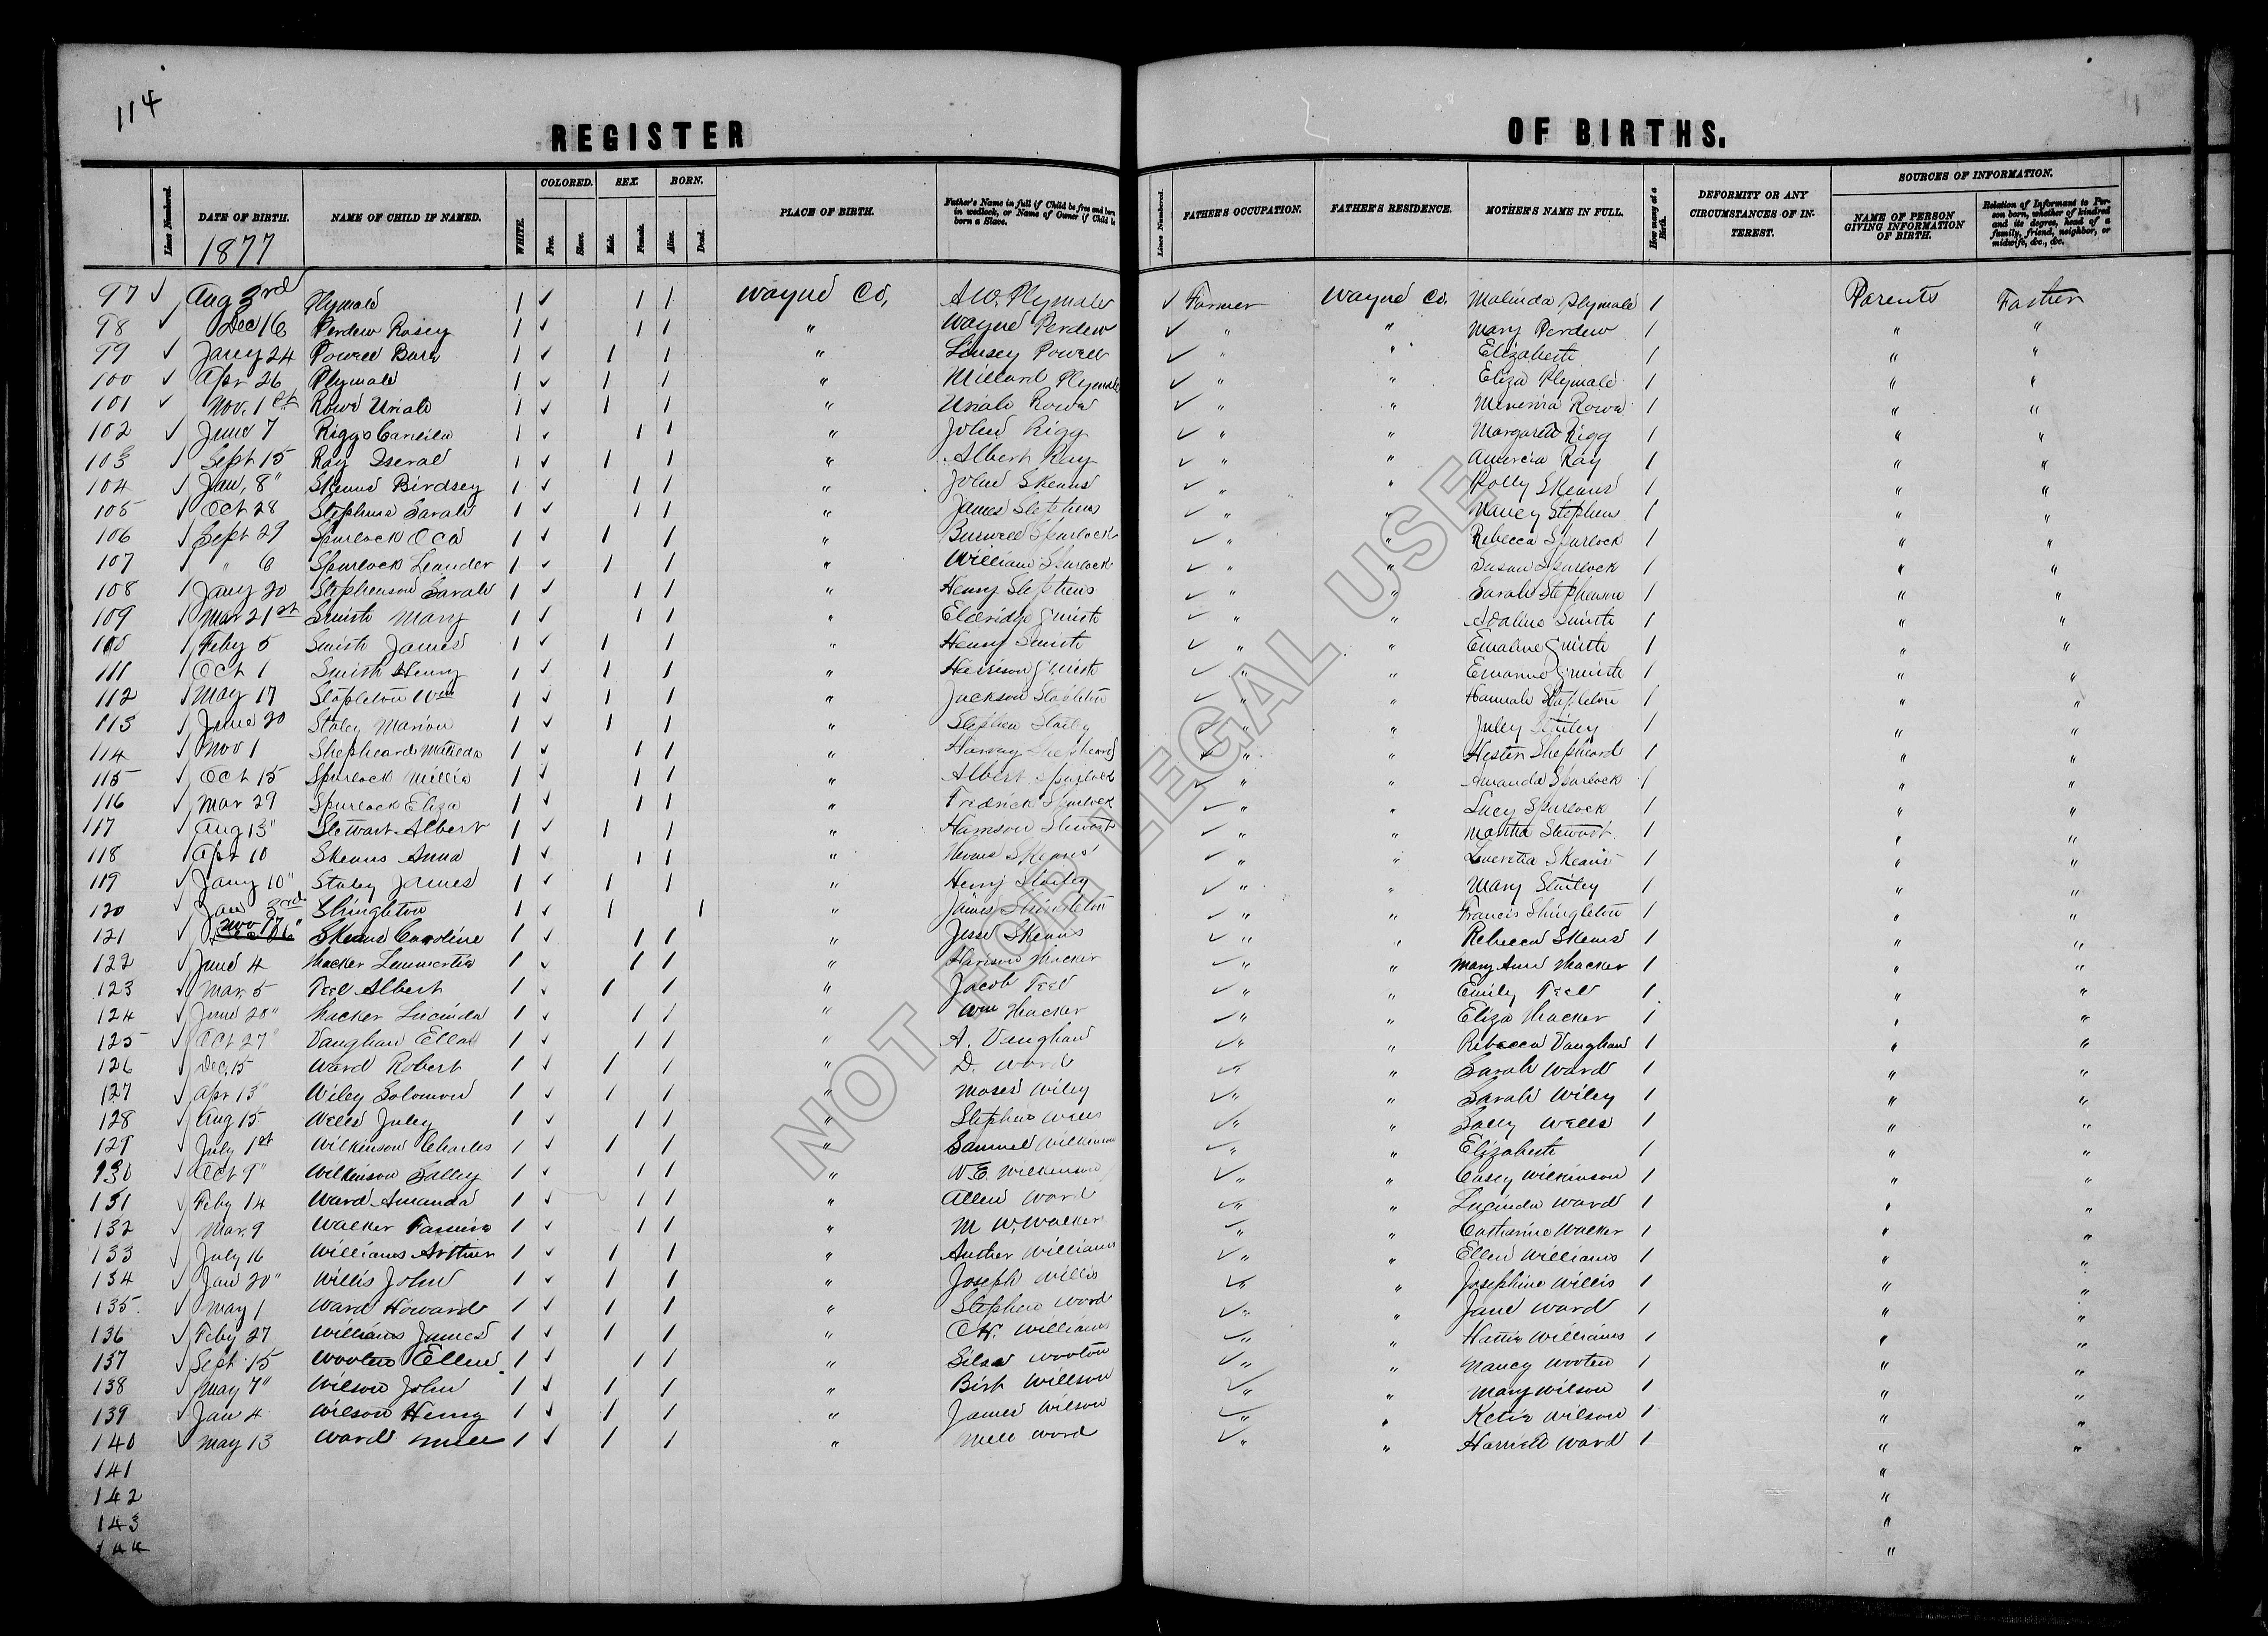 114
REGISTER OF BIRTHS.
Lines Numbered. DATE OF BIRTH. NAME OF CHILD IF NAMED. WHITE. COLORED. Free. Slave. SEX. Male. Female. BORN. Alive. Dead. PLACE OF BIRTH. Father's Name in full if Child be free and born in wedlock, or Name of Owner if Child be born a Slave. Lines Numbered. FATHER'S OCCUPATION. FATHER'S RESIDENCE. MOTHER'S NAME IN FULL. How many at a Birth. DEFORMITY OR ANY CIRCUMSTANCES OF INTEREST. SOURCES OF INFORMATION. NAME OF PERSON GIVING INFORMATION OF BIRTH. Relation of Informant to Person born, whether of kindred and its degree, head of a family, friend, neighbor, or midwife, &c., &c.
1877
97 ✓ Aug 3rd Plymale 1 ✓ 1 1 Wayne Co, A W. Plymale ✓ Farmer Wayne Co. Malinda Plymale 1 Parents Father
98 ✓ Dec 16 Perdew Rosey 1 ✓ 1 1 " Wayne Perdew ✓ " " Mary Perdew 1 " "
99 ✓ Jany 24 Powell 1 ✓ 1 1 " Linsey Powell ✓ " " Elizabeth 1 " "
100 ✓ Apr 26 Plymale 1 ✓ 1 1 " Millard Plymale ✓ " " Eliza Plymale 1 " "
101 ✓ Nov. 1st Rowe Uriah 1 ✓ 1 1 " Uriah Rowe ✓ " " Minerva Rowe 1 " "
102 ✓ June 7 Riggs 1 ✓ 1 1 " John Rigg ✓ " " Margarett Rigg 1 " "
103 ✓ Sept 15 Ray Iseral 1 ✓ 1 1 " Albert Ray ✓ " " Amercia Ray 1 " "
104 ✓ Jan, 8" Skeans Birdsey 1 ✓ 1 1 " John Skeans ✓ " " Polly Skeans 1 " "
105 ✓ Oct 28 Stephens Sarah 1 ✓ 1 1 " James Stephens ✓ " " Nancy Stephens 1 " "
106 ✓ Sept 29 Spurlock Oca 1 ✓ 1 1 " Burwell Spurlock ✓ " " Rebecca Spurlock 1 " "
107 ✓ " 6 Spurlock Leander 1 ✓ 1 1 " William Spurlock ✓ " " Susan Spurlock 1 " "
108 ✓ Jany 20 Stephenson Sarah 1 ✓ 1 1 " Henry Stephens ✓ " " Sarah Stephenson 1 " "
109 ✓ Mar 21st Smith Mary 1 ✓ 1 1 " Eldridge Smith ✓ " " Adaline Smith 1 " "
110 ✓ Feby 5 Smith James 1 ✓ 1 1 " Henry Smith ✓ " " Emaline Smith 1 " "
111 ✓ Oct 1 Smith Henry 1 ✓ 1 1 " Harrison Smith ✓ " " Smith 1 " "
112 ✓ May 17 Stapleton Wm 1 ✓ 1 1 " Jackson Stapleton ✓ " " Hannah Stapleton 1 " "
113 ✓ June 20 Staley Marion 1 ✓ 1 1 " Stephen Staley ✓ " " July Stailey 1 " "
114 ✓ Nov 1 Shepheard Matilda 1 ✓ 1 1 " Harvey Shepheard ✓ " " Hester Shepheard 1 " "
115 ✓ Oct 15 Spurlock Millia 1 ✓ 1 1 " Albert Spurlock ✓ " " Amanda Spurlock 1 " "
116 ✓ Mar 29 Spurlock Eliza 1 ✓ 1 1 " Fredrick Spurlock ✓ " " Lucy Spurlock 1 " "
117 ✓ Aug 13" Stewart Albert 1 ✓ 1 1 " Stewart ✓ " " Martha Stewart 1 " "
118 ✓ Apr 10 Skeans Anna 1 ✓ 1 1 " Skeans ✓ " " Lucretia Skeans 1 " "
119 ✓ Jany 10" Staley James 1 ✓ 1 1 " Henry Stailey ✓ " " Mary Stailey 1 " "
120 ✓ Jan 3rd Shingleton 1 ✓ 1 1 " James Shingleton ✓ " " Francis Shingleton 1 " "
121 ✓ Nov 17" Skeans Caroline 1 ✓ 1 1 " Jesse Skeans ✓ " " Rebecca Skeans 1 " "
122 ✓ June 4 Thacker 1 ✓ 1 1 " Harison Thacker ✓ " " Mary Ann Thacker 1 " "
123 ✓ Mar. 5 Teel Albert 1 ✓ 1 1 " Jacob Teel ✓ " " Emily Teel 1 " "
124 ✓ June 20" Thacker Lucinda 1 ✓ 1 1 " Wm Thacker ✓ " " Eliza Thacker 1 " "
125 ✓ Oct 27" Vaughan Ella 1 ✓ 1 1 " A. Vaughan ✓ " " Rebecca Vaughan 1 " "
126 ✓ Dec, 15 Ward Robert 1 ✓ 1 1 " D. Ward ✓ " " Sarah Ward 1 " "
127 ✓ Apr 13" Wiley Solomon 1 ✓ 1 1 " Moses Wiley ✓ " " Sarah Wiley 1 " "
128 ✓ Aug 15 Wells Juley 1 ✓ 1 1 " Stephen Wells ✓ " " Sally Wells 1 " "
129 ✓ July 1st Wilkinson Charles 1 ✓ 1 1 " Samuel Wilkinson ✓ " " Elizabeth 1 " "
130 ✓ Oct 9" Wilkinson Salley 1 ✓ 1 1 " W. E. Wilkinson ✓ " " Casey Wilkinson 1 " "
131 ✓ Feby 14 Ward Amanda 1 ✓ 1 1 " Allen Ward ✓ " " Lucinda Ward 1 " "
132 ✓ Mar, 9 Walker 1 ✓ 1 1 " M W. Walker ✓ " " Catharine Walker 1 " "
133 ✓ July 16 Williams Arthur 1 ✓ 1 1 " Auther Williams ✓ " " Ellen Williams 1 " "
134 ✓ Jan 20" Willis John 1 ✓ 1 1 " Joseph Willis ✓ " " Josephine Willis 1 " "
135 ✓ May 1 Ward Howard 1 ✓ 1 1 " Stephen Ward ✓ " " Jane Ward 1 " "
136 ✓ Feby 27 Williams James 1 ✓ 1 1 " Williams ✓ " " Hattie Williams 1 " "
137 ✓ Sept 15 Wooten Ellen 1 ✓ 1 1 " Silas Wooton ✓ " " Nancy Wooten 1 " "
138 ✓ May 7" Wilson John 1 ✓ 1 1 " Birt Willson ✓ " " Mary Wilson 1 " "
139 ✓ Jan 4 Wilson Henry 1 ✓ 1 1 " James Wilson ✓ " " Wilson 1 " "
140 ✓ May 13 Ward 1 ✓ 1 1 " Ward ✓ " " Harriett Ward 1 " "
141 "
142 "
143 "
144 "
NOT FOR LEGAL USE